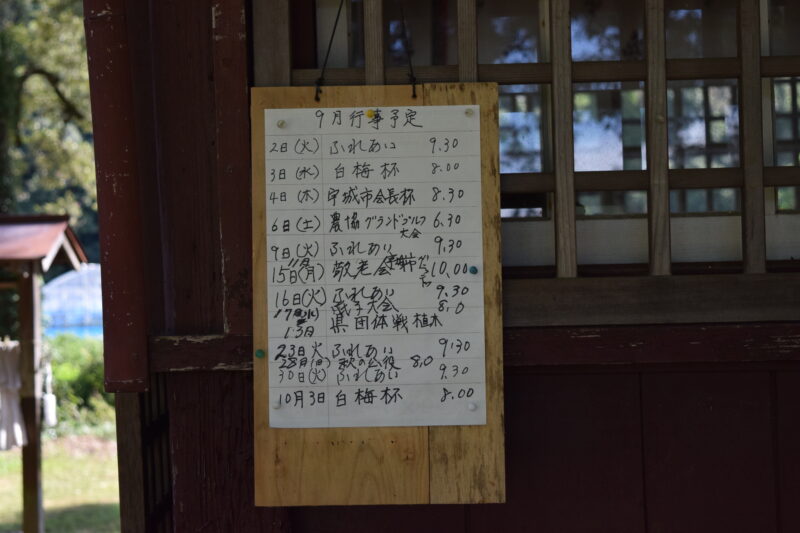 9月行事予定
2日(火) ふれあい 9.30
3日(水) 白梅杯 8.00
4日(木) 宇城市会長杯 8.30
6日(土) 農協グランドゴルフ大会 6.30
9日(火) ふれあい 9.30
15日(月) 敬老会 10.00
16日(火) ふれあい 9.30
17日(水) 大会 8.0
13日 県団体戦植木
23日火 ふれあい 9.30
28日(日) 秋の公役 8.0
30日(火) ふれあい 9.30
10月3日 白梅杯 8.00